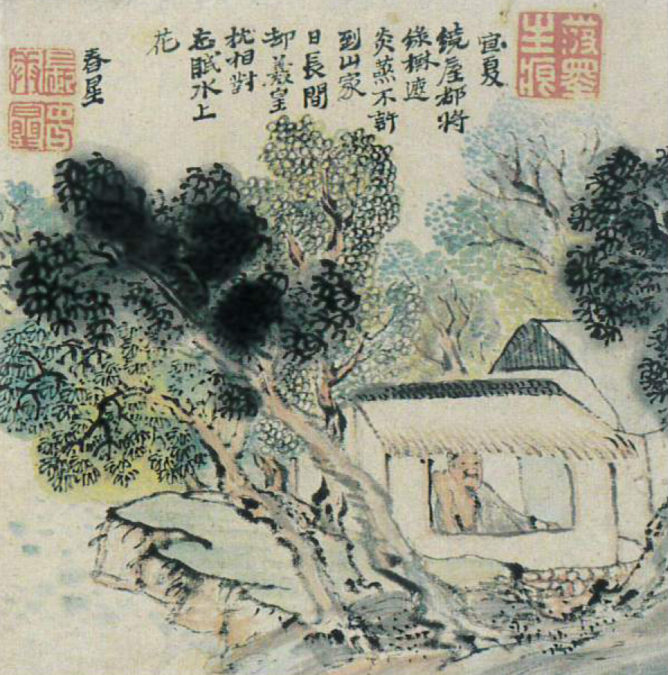 宜夏
繞屋都將
綠樹遮
炎蒸不許
到山家
日長間
却羲皇
枕相對
忘眠水上
花
春星
潑墨生痕